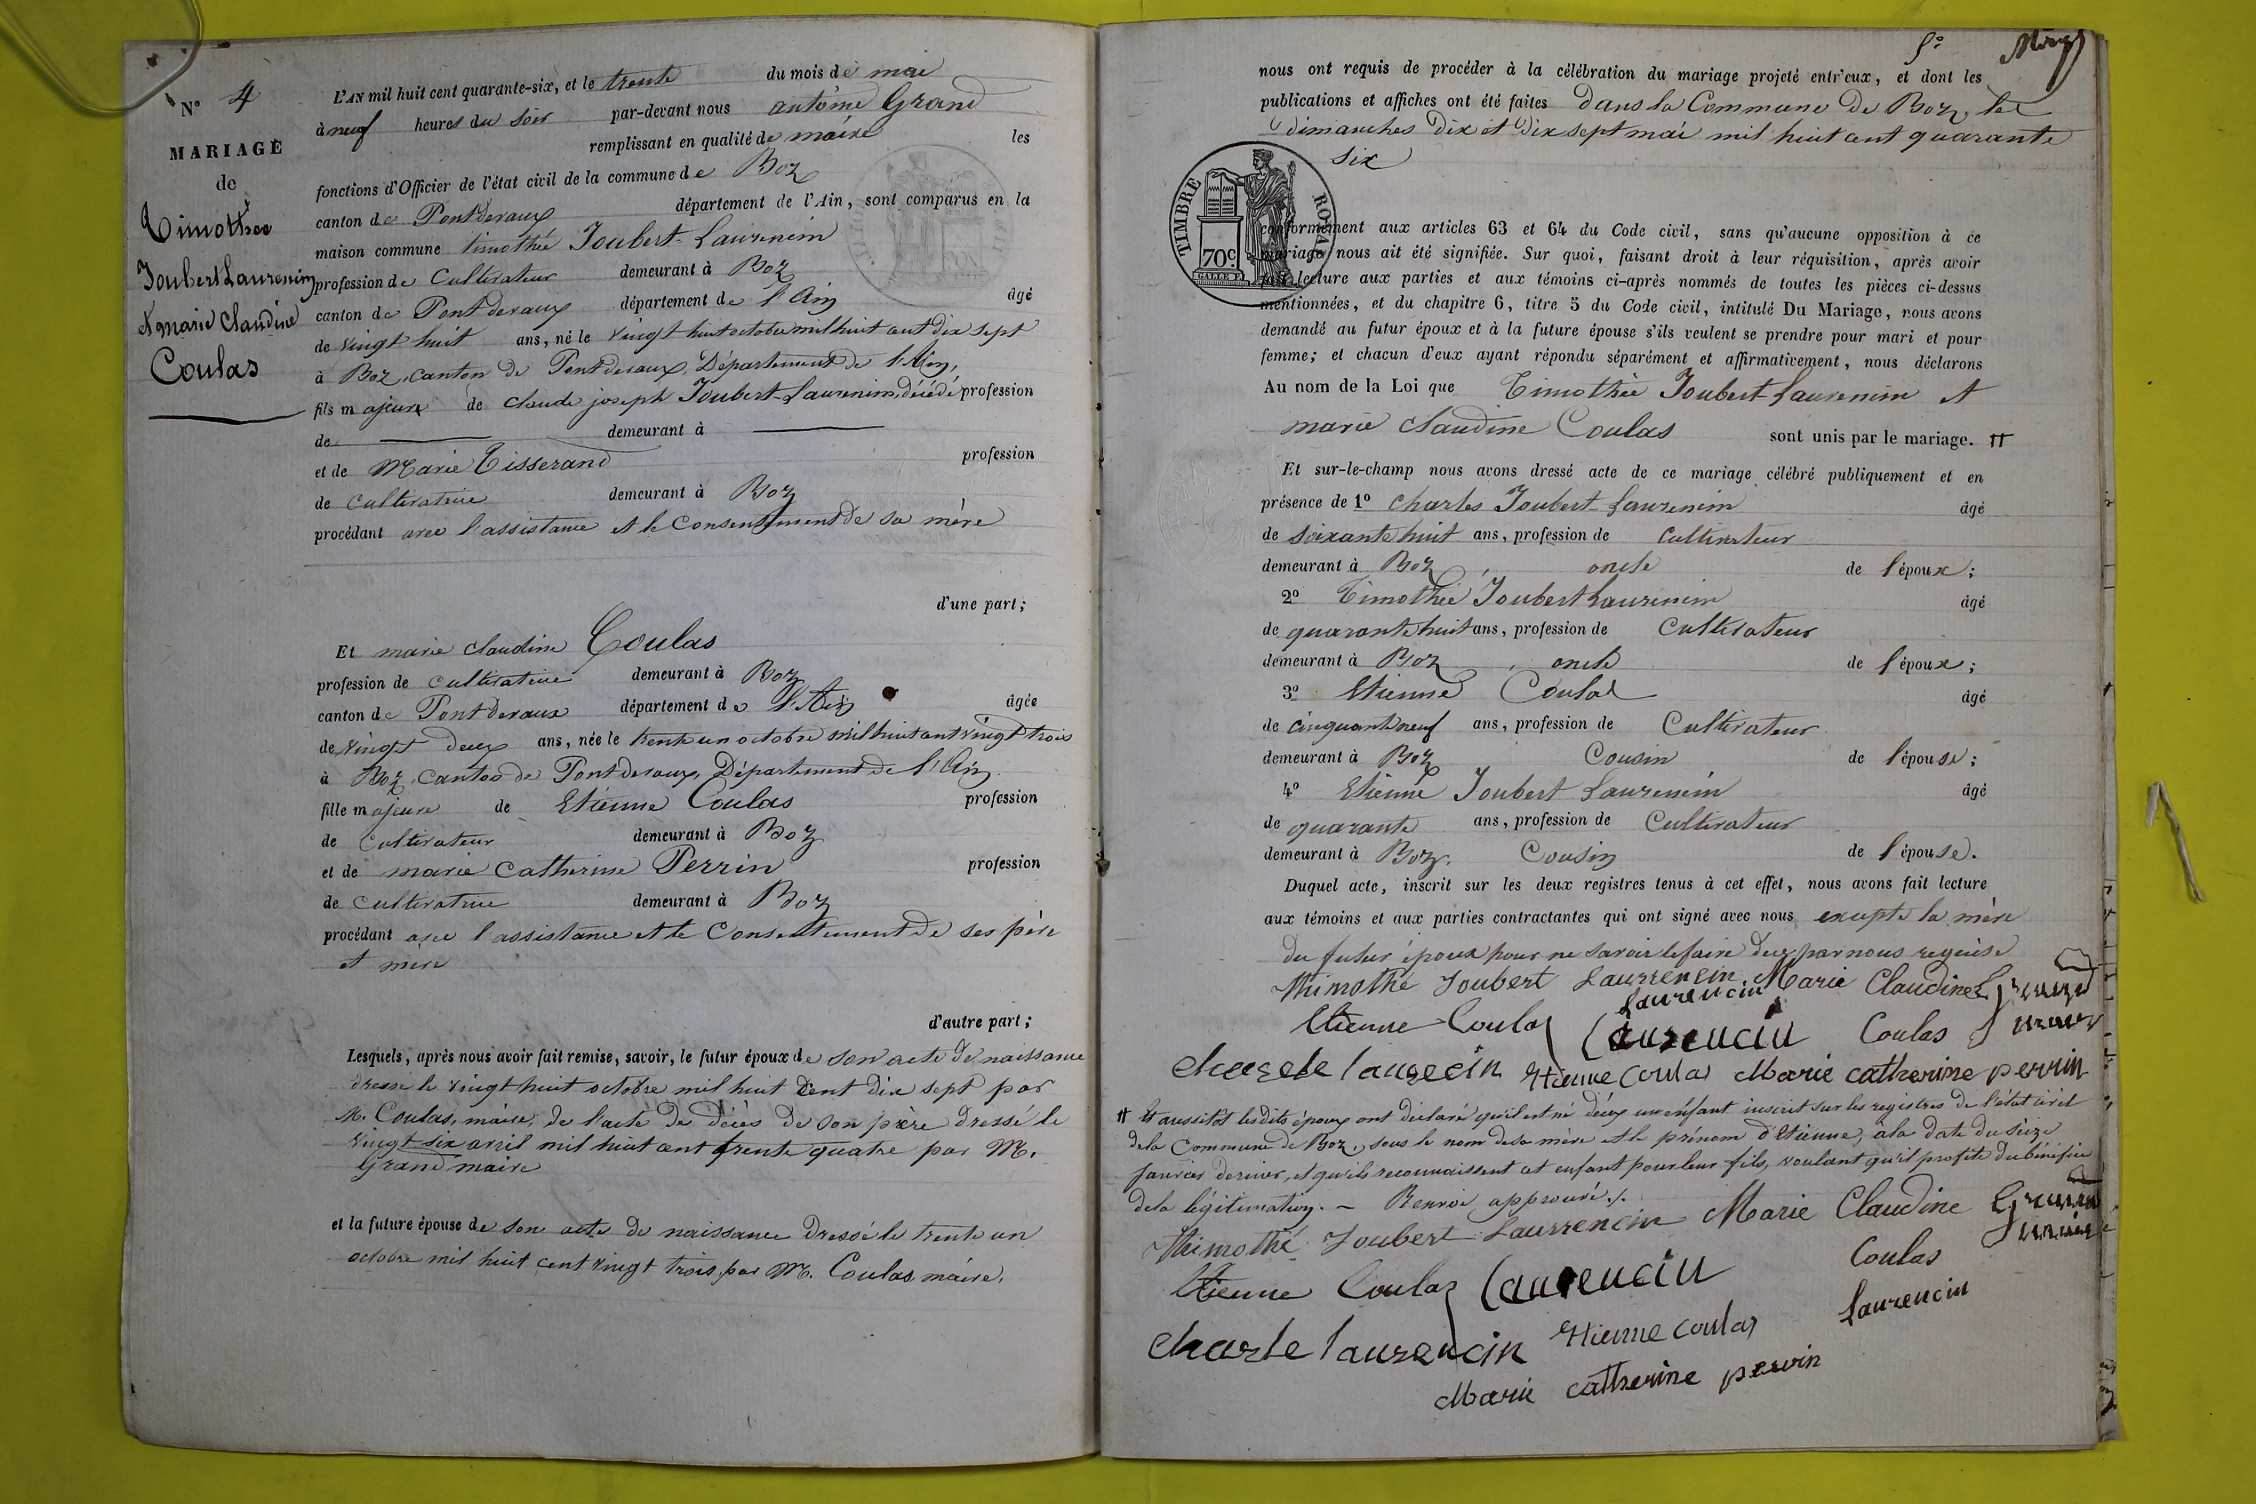 N.º 4
MARIAGE
de
Timothée
Joubert Laurenin
et marie Claudine
Coulas
L'AN mil huit cent quarante-six, et le trente du mois de mai
à neuf heures du soir par-devant nous antoine Grand
remplissant en qualité de maire les
fonctions d'Officier de l'état civil de la commune de Boz
canton de Pontdevaux département de l'Ain, sont comparus en la
maison commune timothée Joubert-Laurenin
profession de Cultivateur demeurant à Boz
canton de Pontdevaux département de l'Ain âgé
de vingt huit ans, né le vingt huit octobre mil huit cent dix sept
à Boz, canton de Pontdevaux, Département de l'Ain,
fils majeur de Claude joseph Joubert-Laurenim, décédé profession
de demeurant à
et de Marie Tisserand profession
de cultivatrice demeurant à Boz
procédant avec l'assistance et le Consentement de sa mère
d'une part;
Et marie Claudine Coulas
profession de cultivatrice demeurant à Boz
canton de Pontdevaux département de l'Ain âgée
de vingt deux ans, née le trente un octobre mil huit cent vingt trois
à Boz, canton de Pontdevaux, Département de l'Ain.
fille majeure de Etienne Coulas profession
de Cultivateur demeurant à Boz
et de marie Catherine Perrin profession
de cultivatrice demeurant à Boz
procédant avec l'assistance et le Consentement de ses père
et mère
d'autre part;
Lesquels, après nous avoir fait remise, savoir, le futur époux de son acte de naissance
dressé le vingt huit octobre mil huit cent dix sept par
M. Coulas, maire, de l'acte de décès de son père dressé le
vingt six avril mil huit cent trente quatre par M.
Grand maire
et la future épouse de son acte de naissance dressé le trente un
octobre mil huit cent vingt trois par M. Coulas maire.
5º
nous ont requis de procéder à la célébration du mariage projeté entr'eux, et dont les
publications et affiches ont été faites dans la Commune de Boz, les
dimanches dix et dix sept mai mil huit cent quarante
six
TIMBRE ROYAL
70c.
conformément aux articles 63 et 64 du Code civil, sans qu'aucune opposition à ce
mariage nous ait été signifiée. Sur quoi, faisant droit à leur réquisition, après avoir
fait lecture aux parties et aux témoins ci-après nommés de toutes les pièces ci-dessus
mentionnées, et du chapitre 6, titre 5 du Code civil, intitulé Du Mariage, nous avons
demandé au futur époux et à la future épouse s'ils veulent se prendre pour mari et pour
femme; et chacun d'eux ayant répondu séparément et affirmativement, nous déclarons
Au nom de la Loi que Timothée Joubert-Laurenim et
marie Claudine Coulas sont unis par le mariage. #
Et sur-le-champ nous avons dressé acte de ce mariage célébré publiquement et en
présence de 1º Charles Joubert-Laurenim âgé
de Soixante huit ans, profession de Cultivateur
demeurant à Boz, oncle de l'époux;
2º Timothée Joubert Laurenim âgé
de quarante huit ans, profession de Cultivateur
demeurant à Boz, oncle de l'époux;
3º Etienne Coulas âgé
de cinquante neuf ans, profession de Cultivateur
demeurant à Boz Cousin de l'épouse;
4º Etienne Joubert Laurenim âgé
de quarante ans, profession de Cultivateur
demeurant à Boz. Cousin de l'épouse.
Duquel acte, inscrit sur les deux registres tenus à cet effet, nous avons fait lecture
aux témoins et aux parties contractantes qui ont signé avec nous excepté la mère
du futur époux pour ne savoir le faire de ce par nous requise
Thimothé Joubert Laurrencin Marie Claudine Grand
Laurencin
Etienne Coulas Laurencin Coulas maire
Charle laurencin Etienne Coulas Marie catherine perrin
# Et aussitôt lesdits époux ont déclaré qu'il est né d'eux un enfant inscrit sur les registres de l'état civil
de la Commune de Boz, sous le nom de sa mère et le prénom d'Etienne, à la date du seize
janvier dernier, et qu'ils reconnaissent cet enfant pour leur fils, voulant qu'il profite du bénéfice
de la légitimation. — Renvoi approuvé./.
Thimothé Joubert Laurrencin Marie Claudine Grand
maire
Coulas
Etienne Coulas Laurencin
Laurencin
Charle laurencin Etienne Coulas
Marie catherine perrin